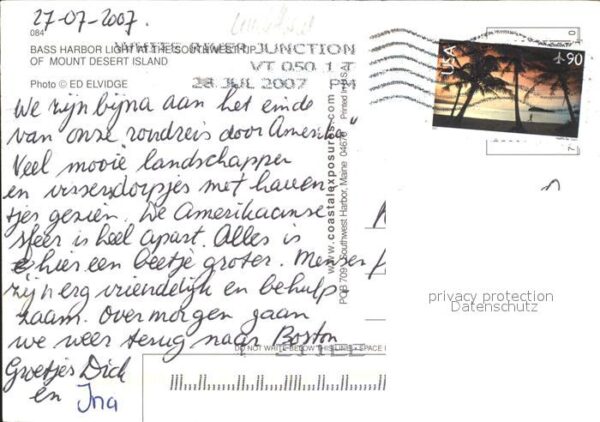 27-07-2007.
084
BASS HARBOR LIGHT AT THE SOUTHWEST TIP
OF MOUNT DESERT ISLAND
Photo © ED ELVIDGE
WHITE RIVER JUNCTION
VT 050 1 T
28 JUL 2007 PM
USA
90
We zijn bijna aan het einde
van onze "rondreis door Amerika"
Veel mooie landschappen
en vissersdorpjes met haven
tjes gezien. De Amerikaanse
sfeer is heel apart. Alles is
hier een beetje groter. Mensen
zijn erg vriendelijk en behulp
zaam. Overmorgen gaan
we weer terug naar Boston
Groetjes Dick
en Ina
www.coastalexposures.com Printed in USA
POB 709 Southwest Harbor, Maine 04679
DO NOT WRITE BELOW THIS LINE • SPACE
privacy protection
Datenschutz